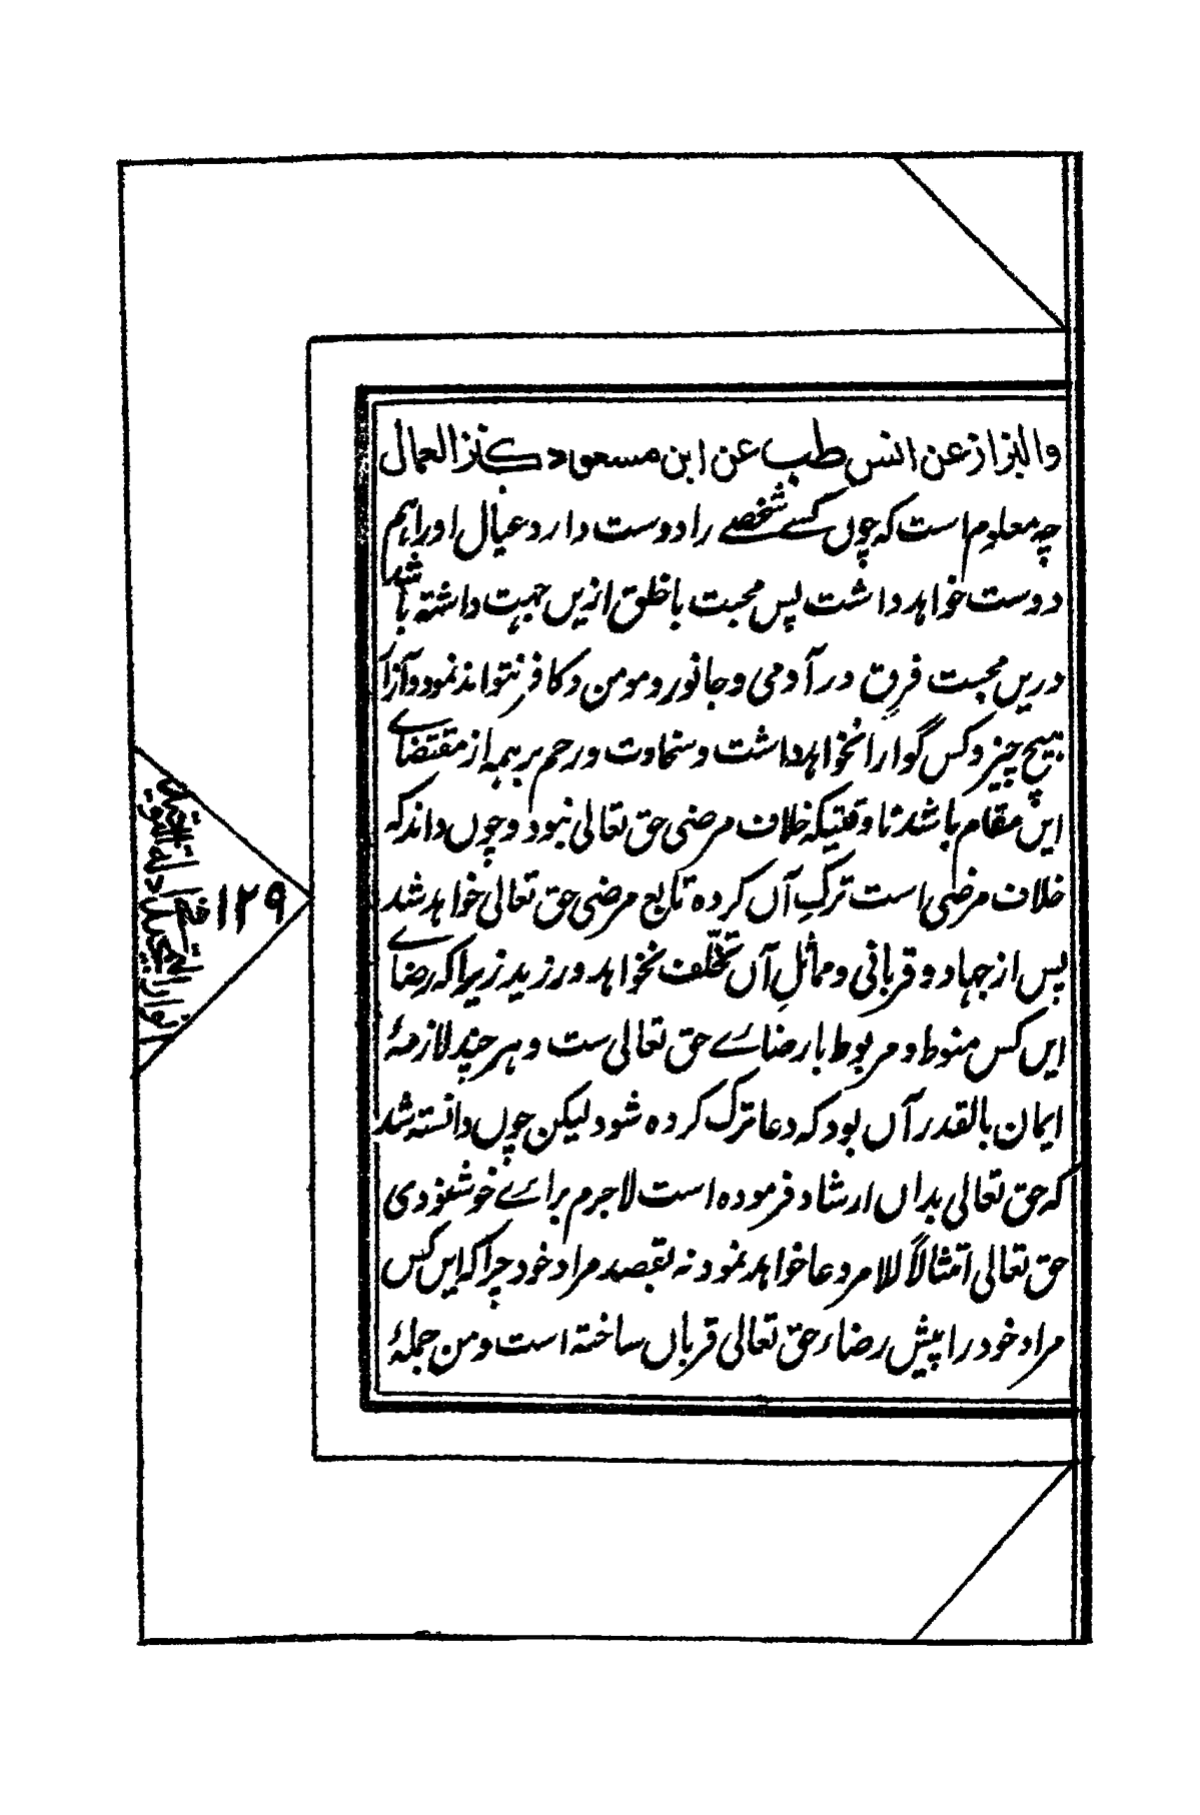 والبزاز عن انس طب عن ابن مسعود کنز العمال
چه معلوم است که چوں کسے شخصے را دوست دارد عیال او را هم
دوست خواهد داشت پس محبت با خلق ازیں جهت داشته باشد
دریں محبت فرق در آدمی و جانور و مومن و کافر نتواند نمود و آزار
هیچ چیز و کس گوارا نخواهد داشت و سخاوت و رحم بر همه از مقتضاے
ایں مقام باشد تا وقتیکه خلاف مرضی حق تعالی نبود و چوں داند که
خلاف مرضی است ترکِ آں کرده تابع مرضی حق تعالی خواهد شد
پس از جهاد و قربانی و مماثلِ آں تخلّف نخواهد ورزید زیرا که رضاے
ایں کس منوط و مربوط بارضاے حق تعالی ست و هر چند لازمهٔ
ایمان بالقدر آں بود که دعا ترک کرده شود لیکن چوں دانسته شد
که حق تعالی بداں ارشاد فرموده است لاجرم براے خوشنودی
حق تعالی امتثالاً للامر دعا خواهد نمود نه بقصد مراد خود چرا که ایں کس
مراد خود را پیش رضاء حقّ تعالی قرباں ساخته است و من جملهٔ
۱۲۹